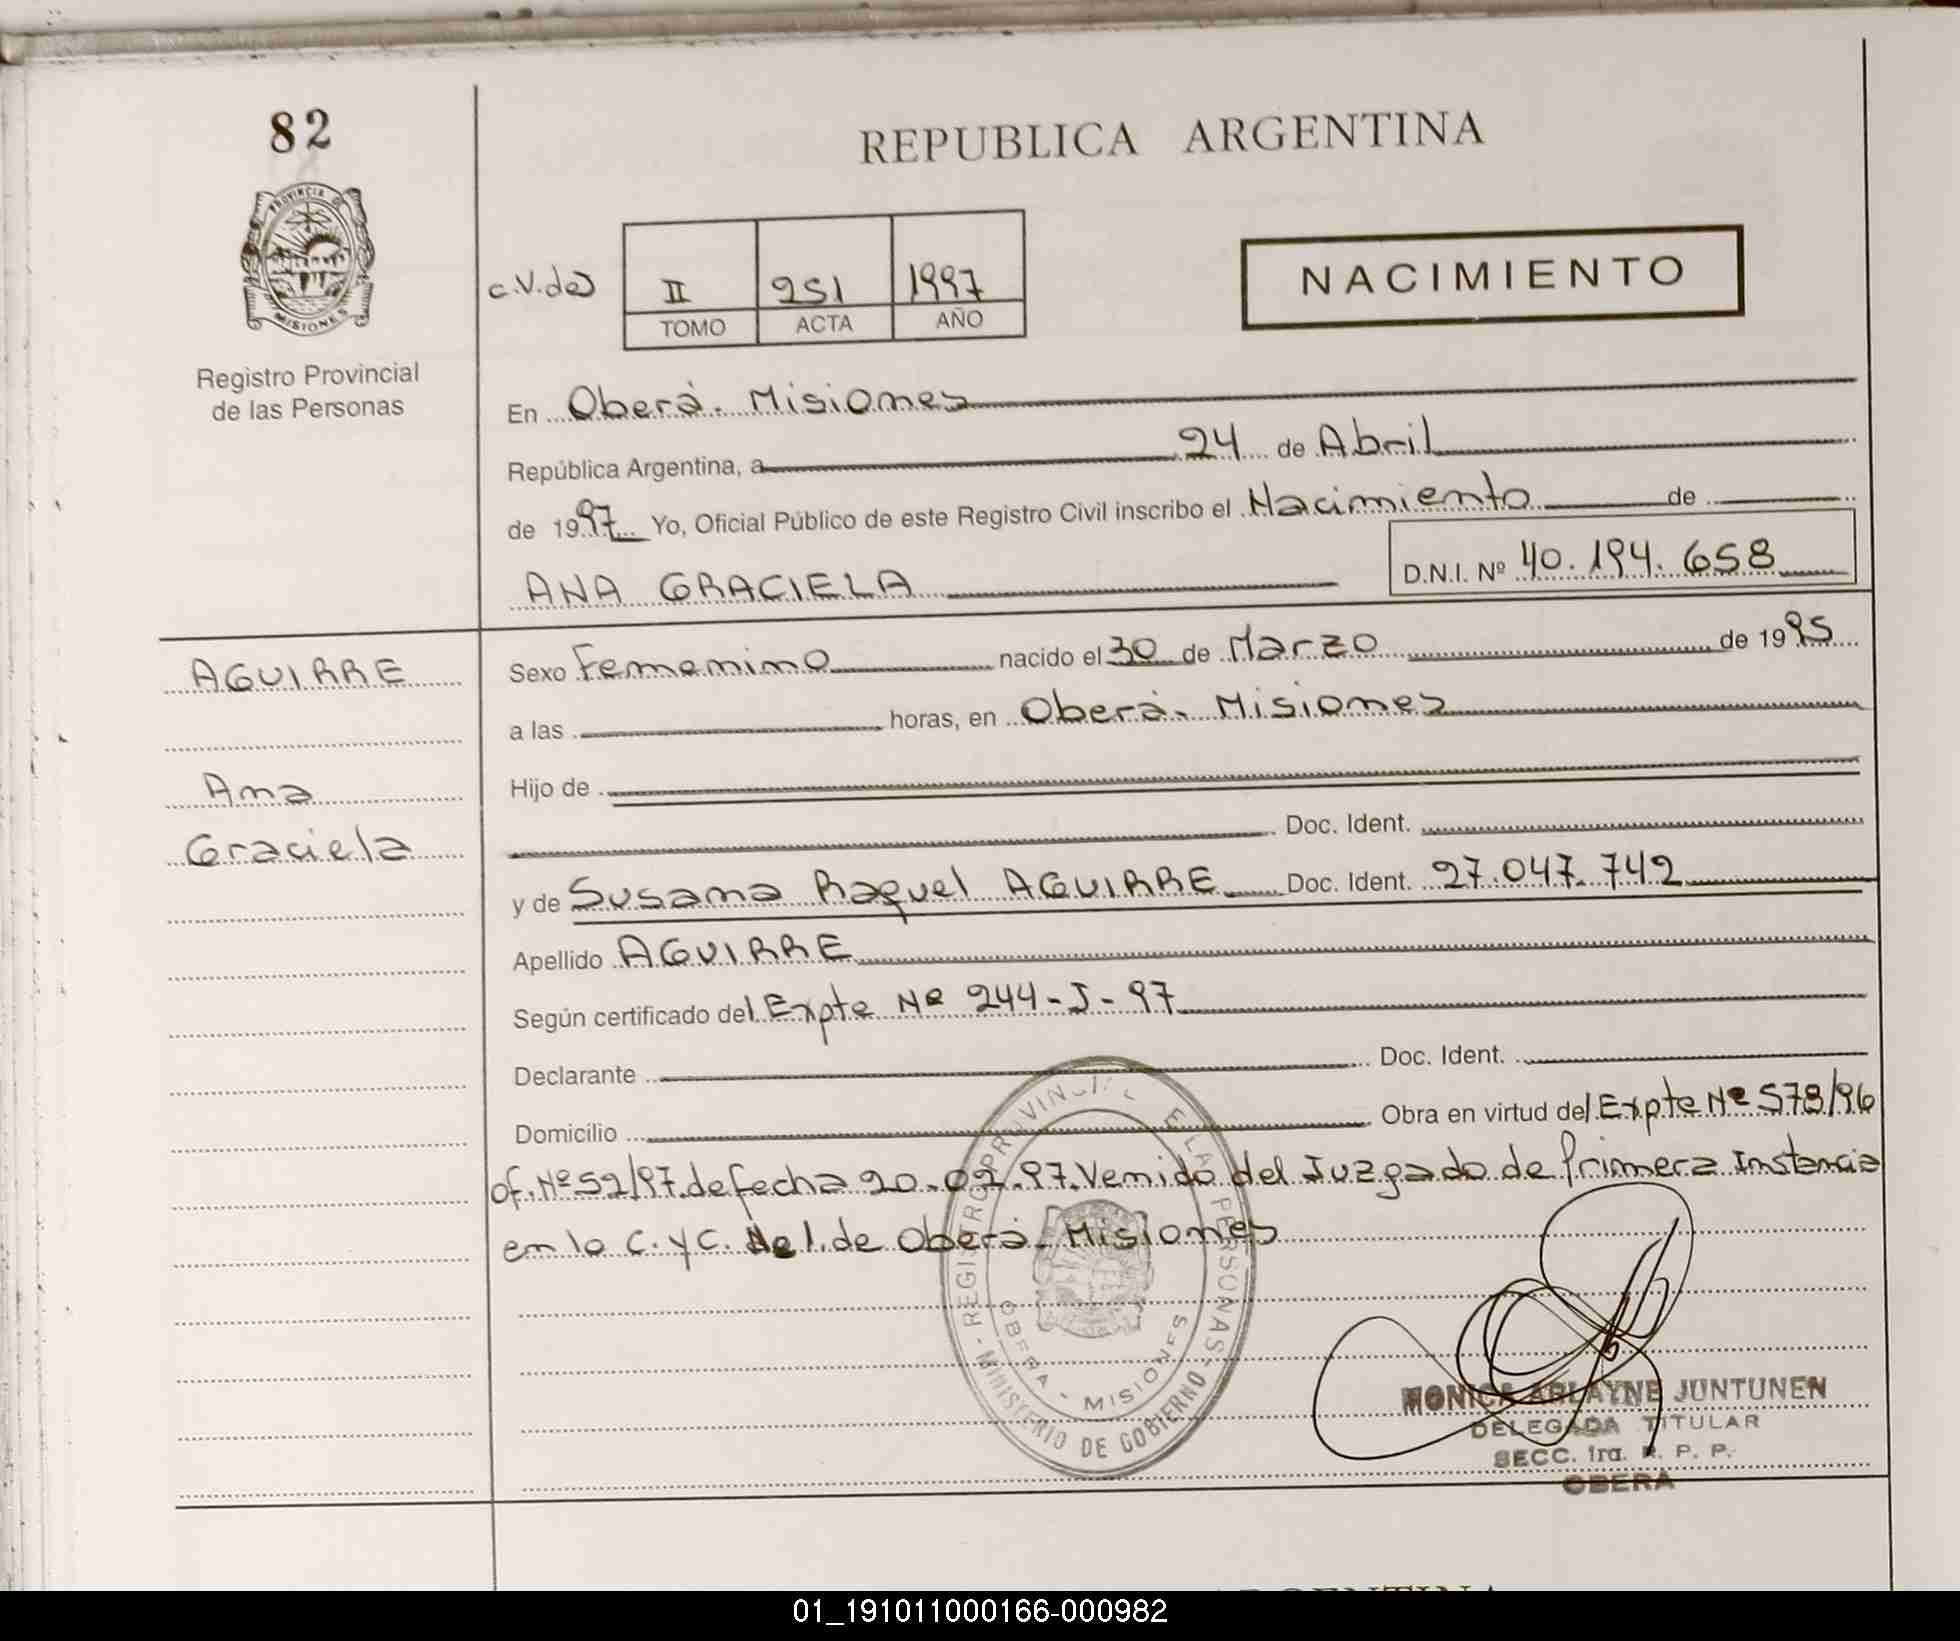 82
REPUBLICA ARGENTINA
PROVINCIA DE
MISIONES
Registro Provincial
de las Personas
c.V.de)
II 251 1997
TOMO ACTA AÑO
NACIMIENTO
En Oberà. Misiones
República Argentina, a 24 de Abril
de 1997 Yo, Oficial Público de este Registro Civil inscribo el Nacimiento de
ANA GRACIELA
D.N.I. Nº 40.194.658
AGUIRRE
Ana
Graciela
Sexo Femenino nacido el 30 de Marzo de 1995
a las horas, en Oberà. Misiones
Hijo de
Doc. Ident.
y de Susana Raquel AGUIRRE Doc. Ident. 27.047.742
Apellido AGUIRRE
Según certificado del Expte Nº 244-J-97
Declarante Doc. Ident.
Domicilio Obra en virtud del Expte Nº 578/96
of. Nº 52/97 de fecha 20.02.97. Venido del Juzgado de Primera Instancia
en lo C. y C. Nº 1. de Oberà. Misiones
MINISTERIO DE GOBIERNO
OBERA - MISIONES
MONICA ARLAYNE JUNTUNEN
DELEGADA TITULAR
SECC. 1ra. R. P. P.
OBERA
01_191011000166-000982